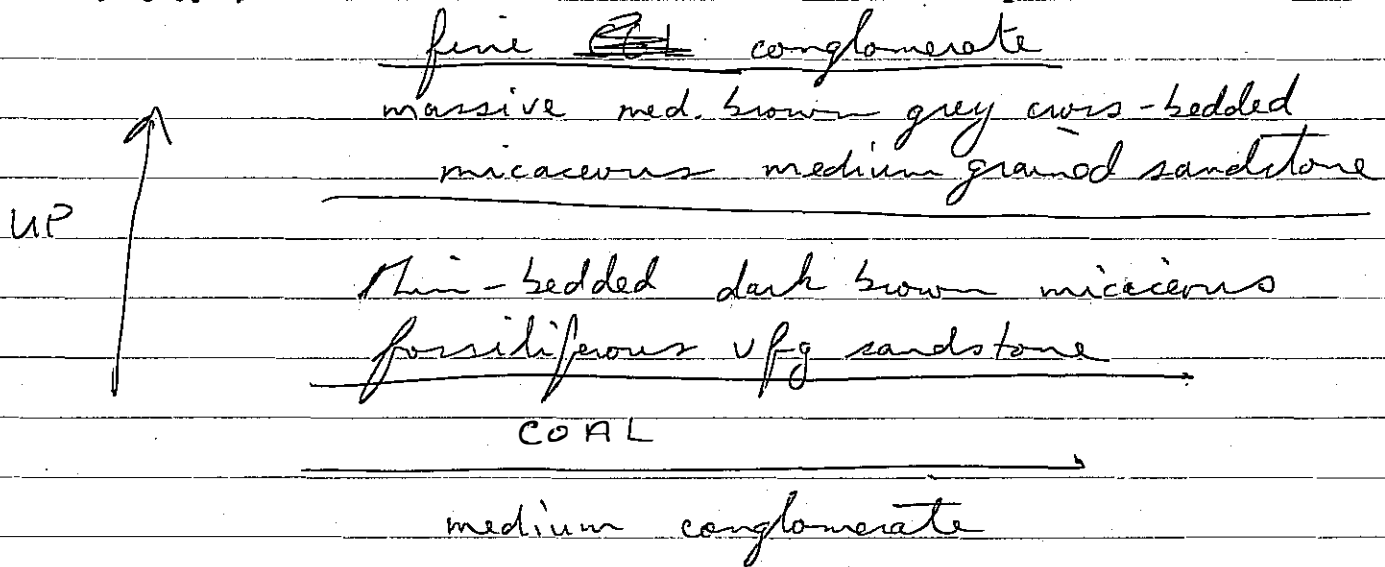 fine conglomerate
massive med. brown grey cross-bedded
micaceous medium grained sandstone
UP
thin-bedded dark brown micaceous
fossiliferous vfg sandstone
COAL
medium conglomerate